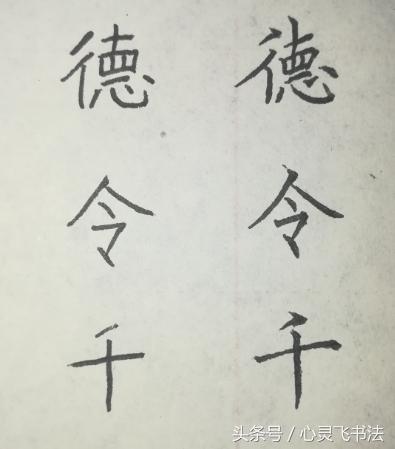 德 德
令 令
千 千
头条号 / 心灵飞书法